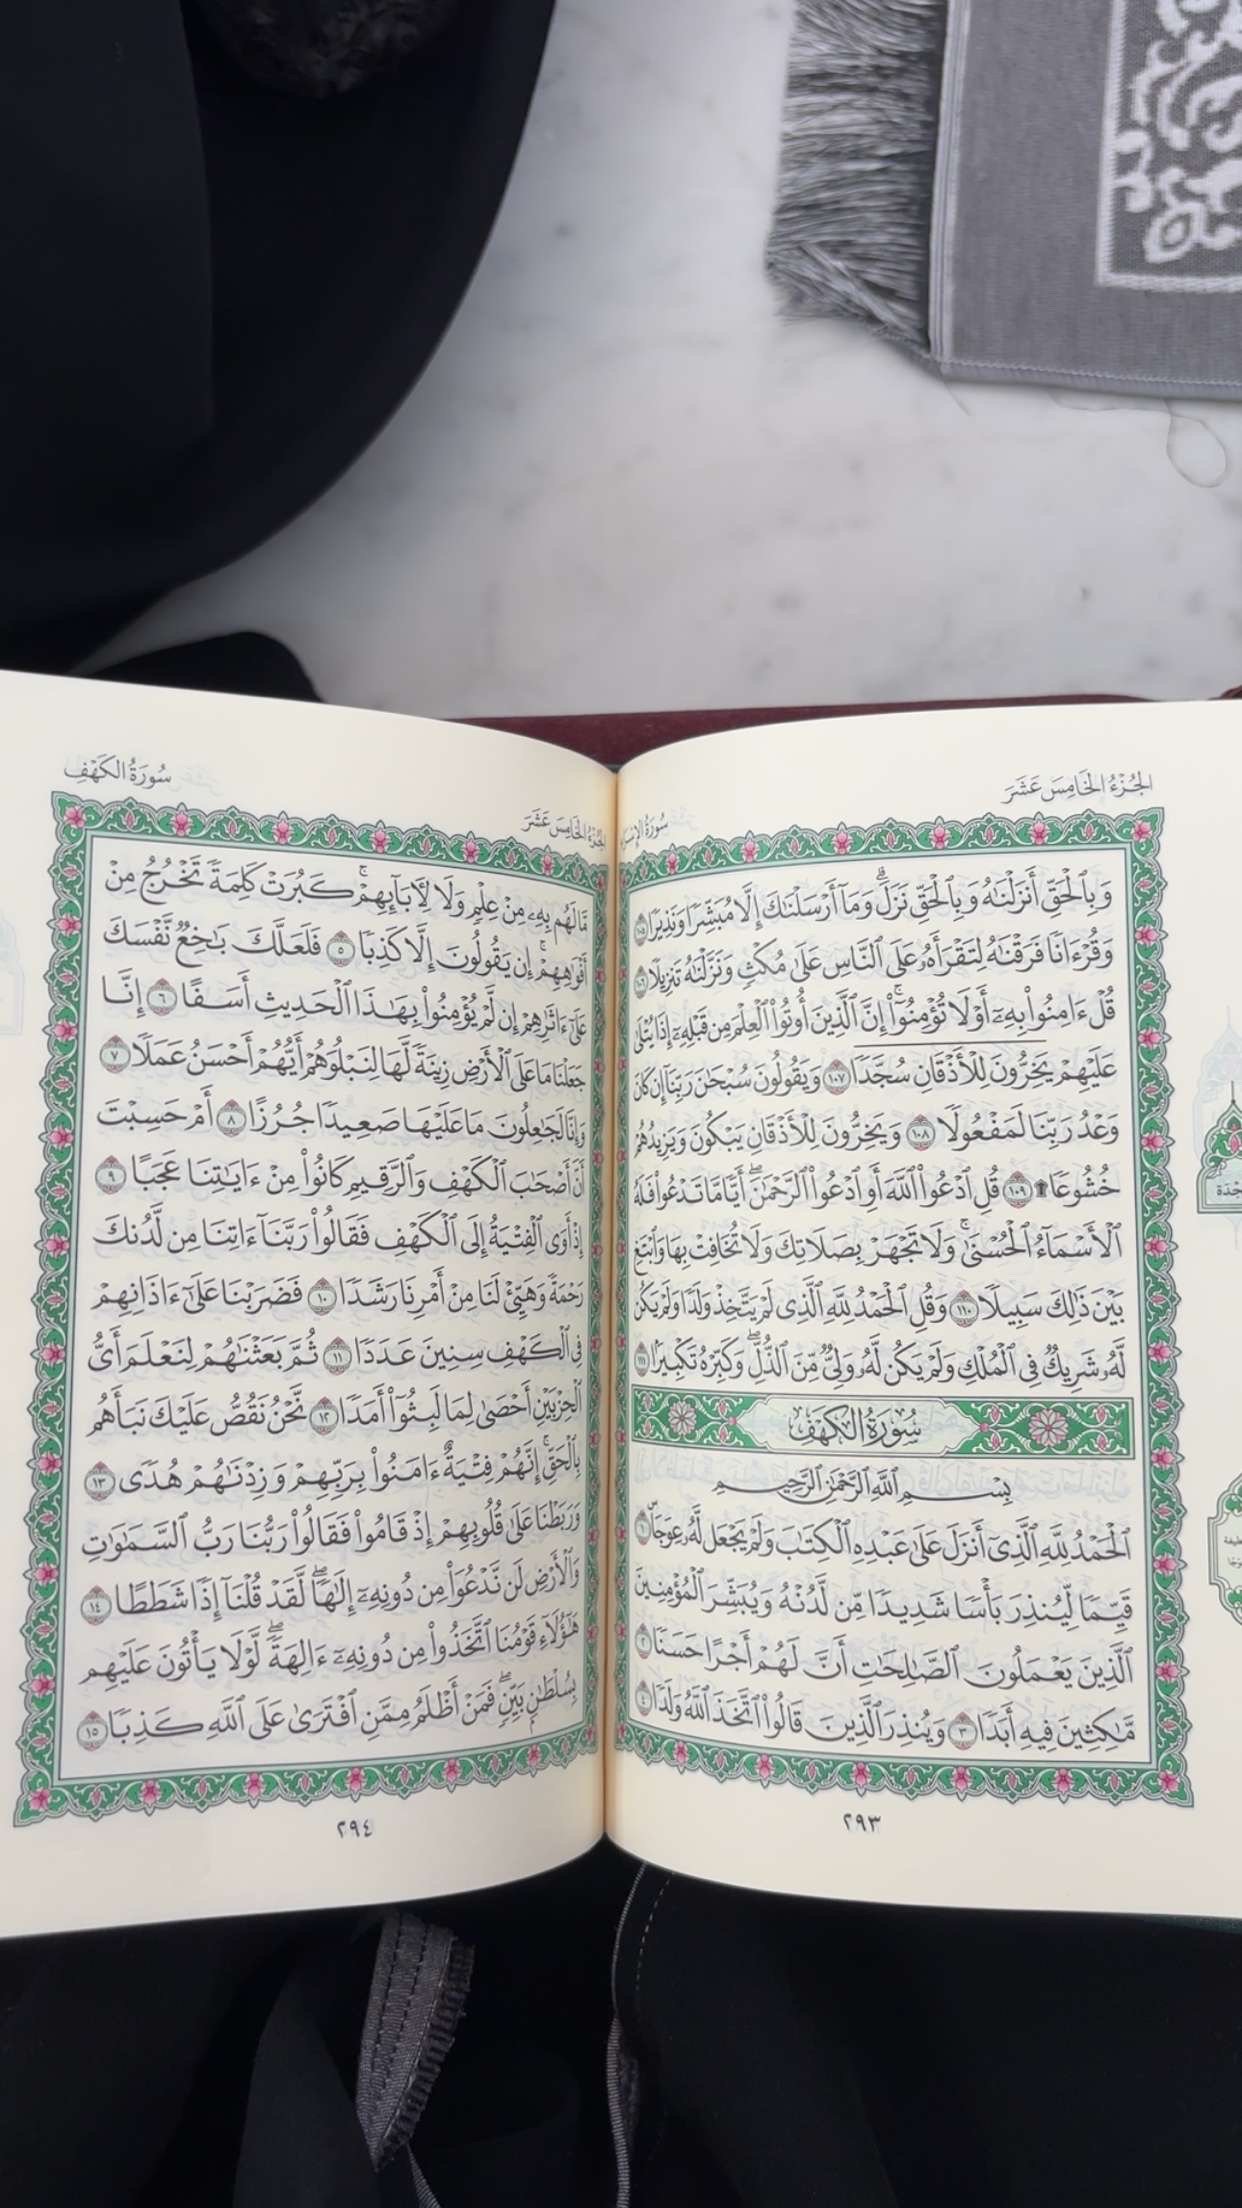 الجزء الخامس عشر
سورة الإسراء
وَبِٱلْحَقِّ أَنزَلْنَٰهُ وَبِٱلْحَقِّ نَزَلَ ۗ وَمَآ أَرْسَلْنَٰكَ إِلَّا مُبَشِّرًا وَنَذِيرًا ١٠٥
وَقُرْءَانًا فَرَقْنَٰهُ لِتَقْرَأَهُۥ عَلَى ٱلنَّاسِ عَلَىٰ مُكْثٍ وَنَزَّلْنَٰهُ تَنزِيلًا ١٠٦
قُلْ ءَامِنُوا۟ بِهِۦٓ أَوْ لَا تُؤْمِنُوٓا۟ ۚ إِنَّ ٱلَّذِينَ أُوتُوا۟ ٱلْعِلْمَ مِن قَبْلِهِۦٓ إِذَا يُتْلَىٰ
عَلَيْهِمْ يَخِرُّونَ لِلْأَذْقَانِ سُجَّدًا ١٠٧ وَيَقُولُونَ سُبْحَٰنَ رَبِّنَآ إِن كَانَ
وَعْدُ رَبِّنَا لَمَفْعُولًا ١٠٨ وَيَخِرُّونَ لِلْأَذْقَانِ يَبْكُونَ وَيَزِيدُهُمْ
خُشُوعًا ۩ ١٠٩ قُلِ ٱدْعُوا۟ ٱللَّهَ أَوِ ٱدْعُوا۟ ٱلرَّحْمَٰنَ ۖ أَيًّا مَّا تَدْعُوا۟ فَلَهُ
ٱلْأَسْمَآءُ ٱلْحُسْنَىٰ ۚ وَلَا تَجْهَرْ بِصَلَاتِكَ وَلَا تُخَافِتْ بِهَا وَٱبْتَغِ
بَيْنَ ذَٰلِكَ سَبِيلًا ١١٠ وَقُلِ ٱلْحَمْدُ لِلَّهِ ٱلَّذِى لَمْ يَتَّخِذْ وَلَدًا وَلَمْ يَكُن
لَّهُۥ شَرِيكٌ فِى ٱلْمُلْكِ وَلَمْ يَكُن لَّهُۥ وَلِىٌّ مِّنَ ٱلذُّلِّ ۖ وَكَبِّرْهُ تَكْبِيرًۢا ١١١
سُورَةُ الكَهْفِ
بِسْمِ ٱللَّهِ ٱلرَّحْمَٰنِ ٱلرَّحِيمِ
ٱلْحَمْدُ لِلَّهِ ٱلَّذِىٓ أَنزَلَ عَلَىٰ عَبْدِهِ ٱلْكِتَٰبَ وَلَمْ يَجْعَل لَّهُۥ عِوَجَاۜ ١
قَيِّمًا لِّيُنذِرَ بَأْسًا شَدِيدًا مِّن لَّدُنْهُ وَيُبَشِّرَ ٱلْمُؤْمِنِينَ
ٱلَّذِينَ يَعْمَلُونَ ٱلصَّٰلِحَٰتِ أَنَّ لَهُمْ أَجْرًا حَسَنًا ٢
مَّٰكِثِينَ فِيهِ أَبَدًا ٣ وَيُنذِرَ ٱلَّذِينَ قَالُوا۟ ٱتَّخَذَ ٱللَّهُ وَلَدًا ٤
٢٩٣
الجزء الخامس عشر
سورة الكهف
مَّا لَهُم بِهِۦ مِنْ عِلْمٍ وَلَا لِءَابَآئِهِمْ ۚ كَبُرَتْ كَلِمَةً تَخْرُجُ مِنْ
أَفْوَٰهِهِمْ ۚ إِن يَقُولُونَ إِلَّا كَذِبًا ٥ فَلَعَلَّكَ بَٰخِعٌ نَّفْسَكَ
عَلَىٰٓ ءَاثَٰرِهِمْ إِن لَّمْ يُؤْمِنُوا۟ بِهَٰذَا ٱلْحَدِيثِ أَسَفًا ٦ إِنَّا
جَعَلْنَا مَا عَلَى ٱلْأَرْضِ زِينَةً لَّهَا لِنَبْلُوَهُمْ أَيُّهُمْ أَحْسَنُ عَمَلًا ٧
وَإِنَّا لَجَٰعِلُونَ مَا عَلَيْهَا صَعِيدًا جُرُزًا ٨ أَمْ حَسِبْتَ
أَنَّ أَصْحَٰبَ ٱلْكَهْفِ وَٱلرَّقِيمِ كَانُوا۟ مِنْ ءَايَٰتِنَا عَجَبًا ٩
إِذْ أَوَى ٱلْفِتْيَةُ إِلَى ٱلْكَهْفِ فَقَالُوا۟ رَبَّنَآ ءَاتِنَا مِن لَّدُنكَ
رَحْمَةً وَهَيِّئْ لَنَا مِنْ أَمْرِنَا رَشَدًا ١٠ فَضَرَبْنَا عَلَىٰٓ ءَاذَانِهِمْ
فِى ٱلْكَهْفِ سِنِينَ عَدَدًا ١١ ثُمَّ بَعَثْنَٰهُمْ لِنَعْلَمَ أَىُّ
ٱلْحِزْبَيْنِ أَحْصَىٰ لِمَا لَبِثُوٓا۟ أَمَدًا ١٢ نَّحْنُ نَقُصُّ عَلَيْكَ نَبَأَهُم
بِٱلْحَقِّ ۚ إِنَّهُمْ فِتْيَةٌ ءَامَنُوا۟ بِرَبِّهِمْ وَزِدْنَٰهُمْ هُدًى ١٣
وَرَبَطْنَا عَلَىٰ قُلُوبِهِمْ إِذْ قَامُوا۟ فَقَالُوا۟ رَبُّنَا رَبُّ ٱلسَّمَٰوَٰتِ
وَٱلْأَرْضِ لَن نَّدْعُوَا۟ مِن دُونِهِۦٓ إِلَٰهًا ۖ لَّقَدْ قُلْنَآ إِذًا شَطَطًا ١٤
هَٰٓؤُلَآءِ قَوْمُنَا ٱتَّخَذُوا۟ مِن دُونِهِۦٓ ءَالِهَةً ۖ لَّوْلَا يَأْتُونَ عَلَيْهِم
بِسُلْطَٰنٍۭ بَيِّنٍ ۖ فَمَنْ أَظْلَمُ مِمَّنِ ٱفْتَرَىٰ عَلَى ٱللَّهِ كَذِبًا ١٥
٢٩٤